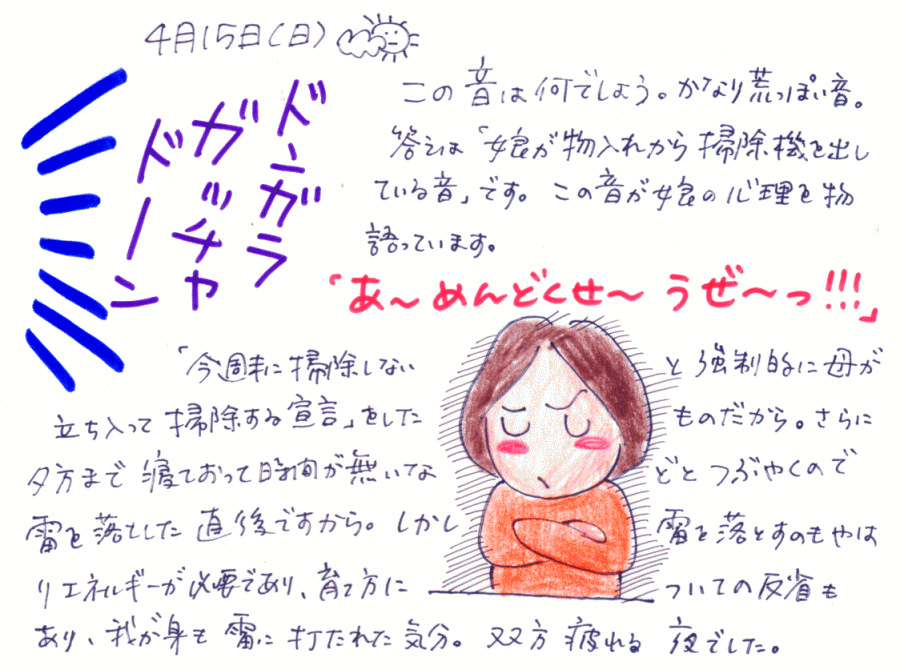 4月15日(日)
ドンガラ
ガッチャ
ドーン
この音は何でしょう。かなり荒っぽい音。
答えは「娘が物入れから掃除機を出し
ている音」です。この音が娘の心理を物
語っています。
「あ〜めんどくせ〜うぜ〜っ!!!」
「今週末に掃除しない
と強制的に母が
立ち入って掃除する宣言」をした
ものだから。さらに
夕方まで寝ておって時間が無いな
どとつぶやくので
雷を落とした直後ですから。しかし
雷を落とすのもやは
りエネルギーが必要であり、育て方に
ついての反省も
あり、我が身も雷に打たれた気分。双方疲れる夜でした。